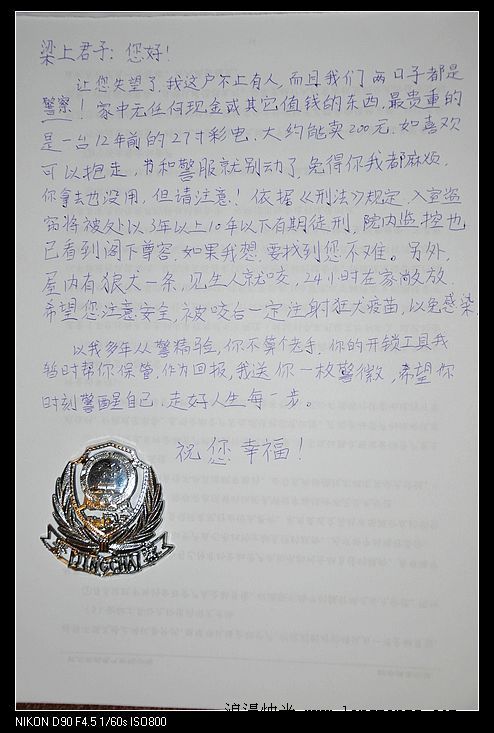 梁上君子：您好！
让您失望了，我这户不止有人，而且我们两口子都是
警察！家中无任何现金或其它值钱的东西，最贵重的
是一台12年前的27寸彩电，大约能卖200元，如喜欢
可以抱走，书和警服就别动了，免得你我都麻烦，
你拿去也没用，但请注意！依据《刑法》规定，入室盗
窃将被处以3年以上10年以下有期徒刑，院内监控也
已看到阁下尊容，如果我想，要找到您不难。另外，
屋内有狼犬一条，见生人就咬，24小时在家敞放，
希望您注意安全，被咬后一定注射狂犬疫苗，以免感染。
以我多年从警经验，你不算老手，你的开锁工具我
暂时帮你保管，作为回报，我送你一枚警徽，希望你
时刻警醒自己，走好人生每一步。
祝您幸福！
警 JINGCHA 察
www.
NIKON D90 F4.5 1/60s ISO800